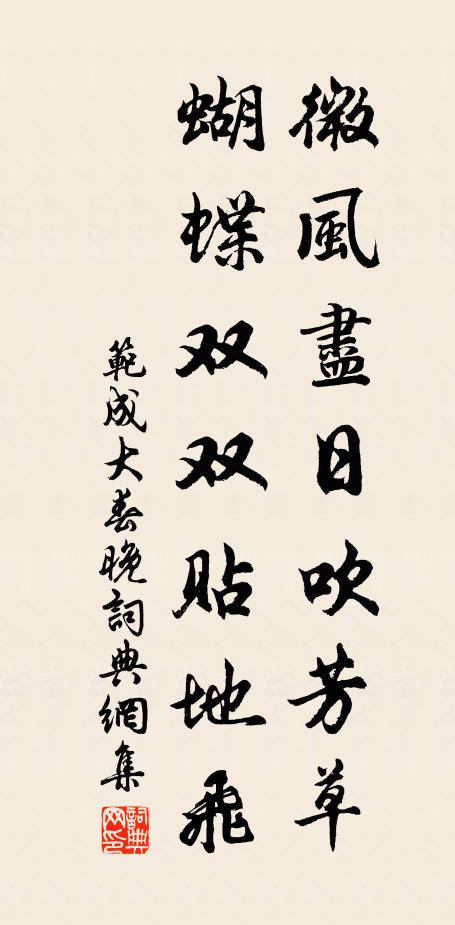 微風盡日吹芳草
蝴蝶双双貼地飛
範成大春晚詞典網集
詞典网印